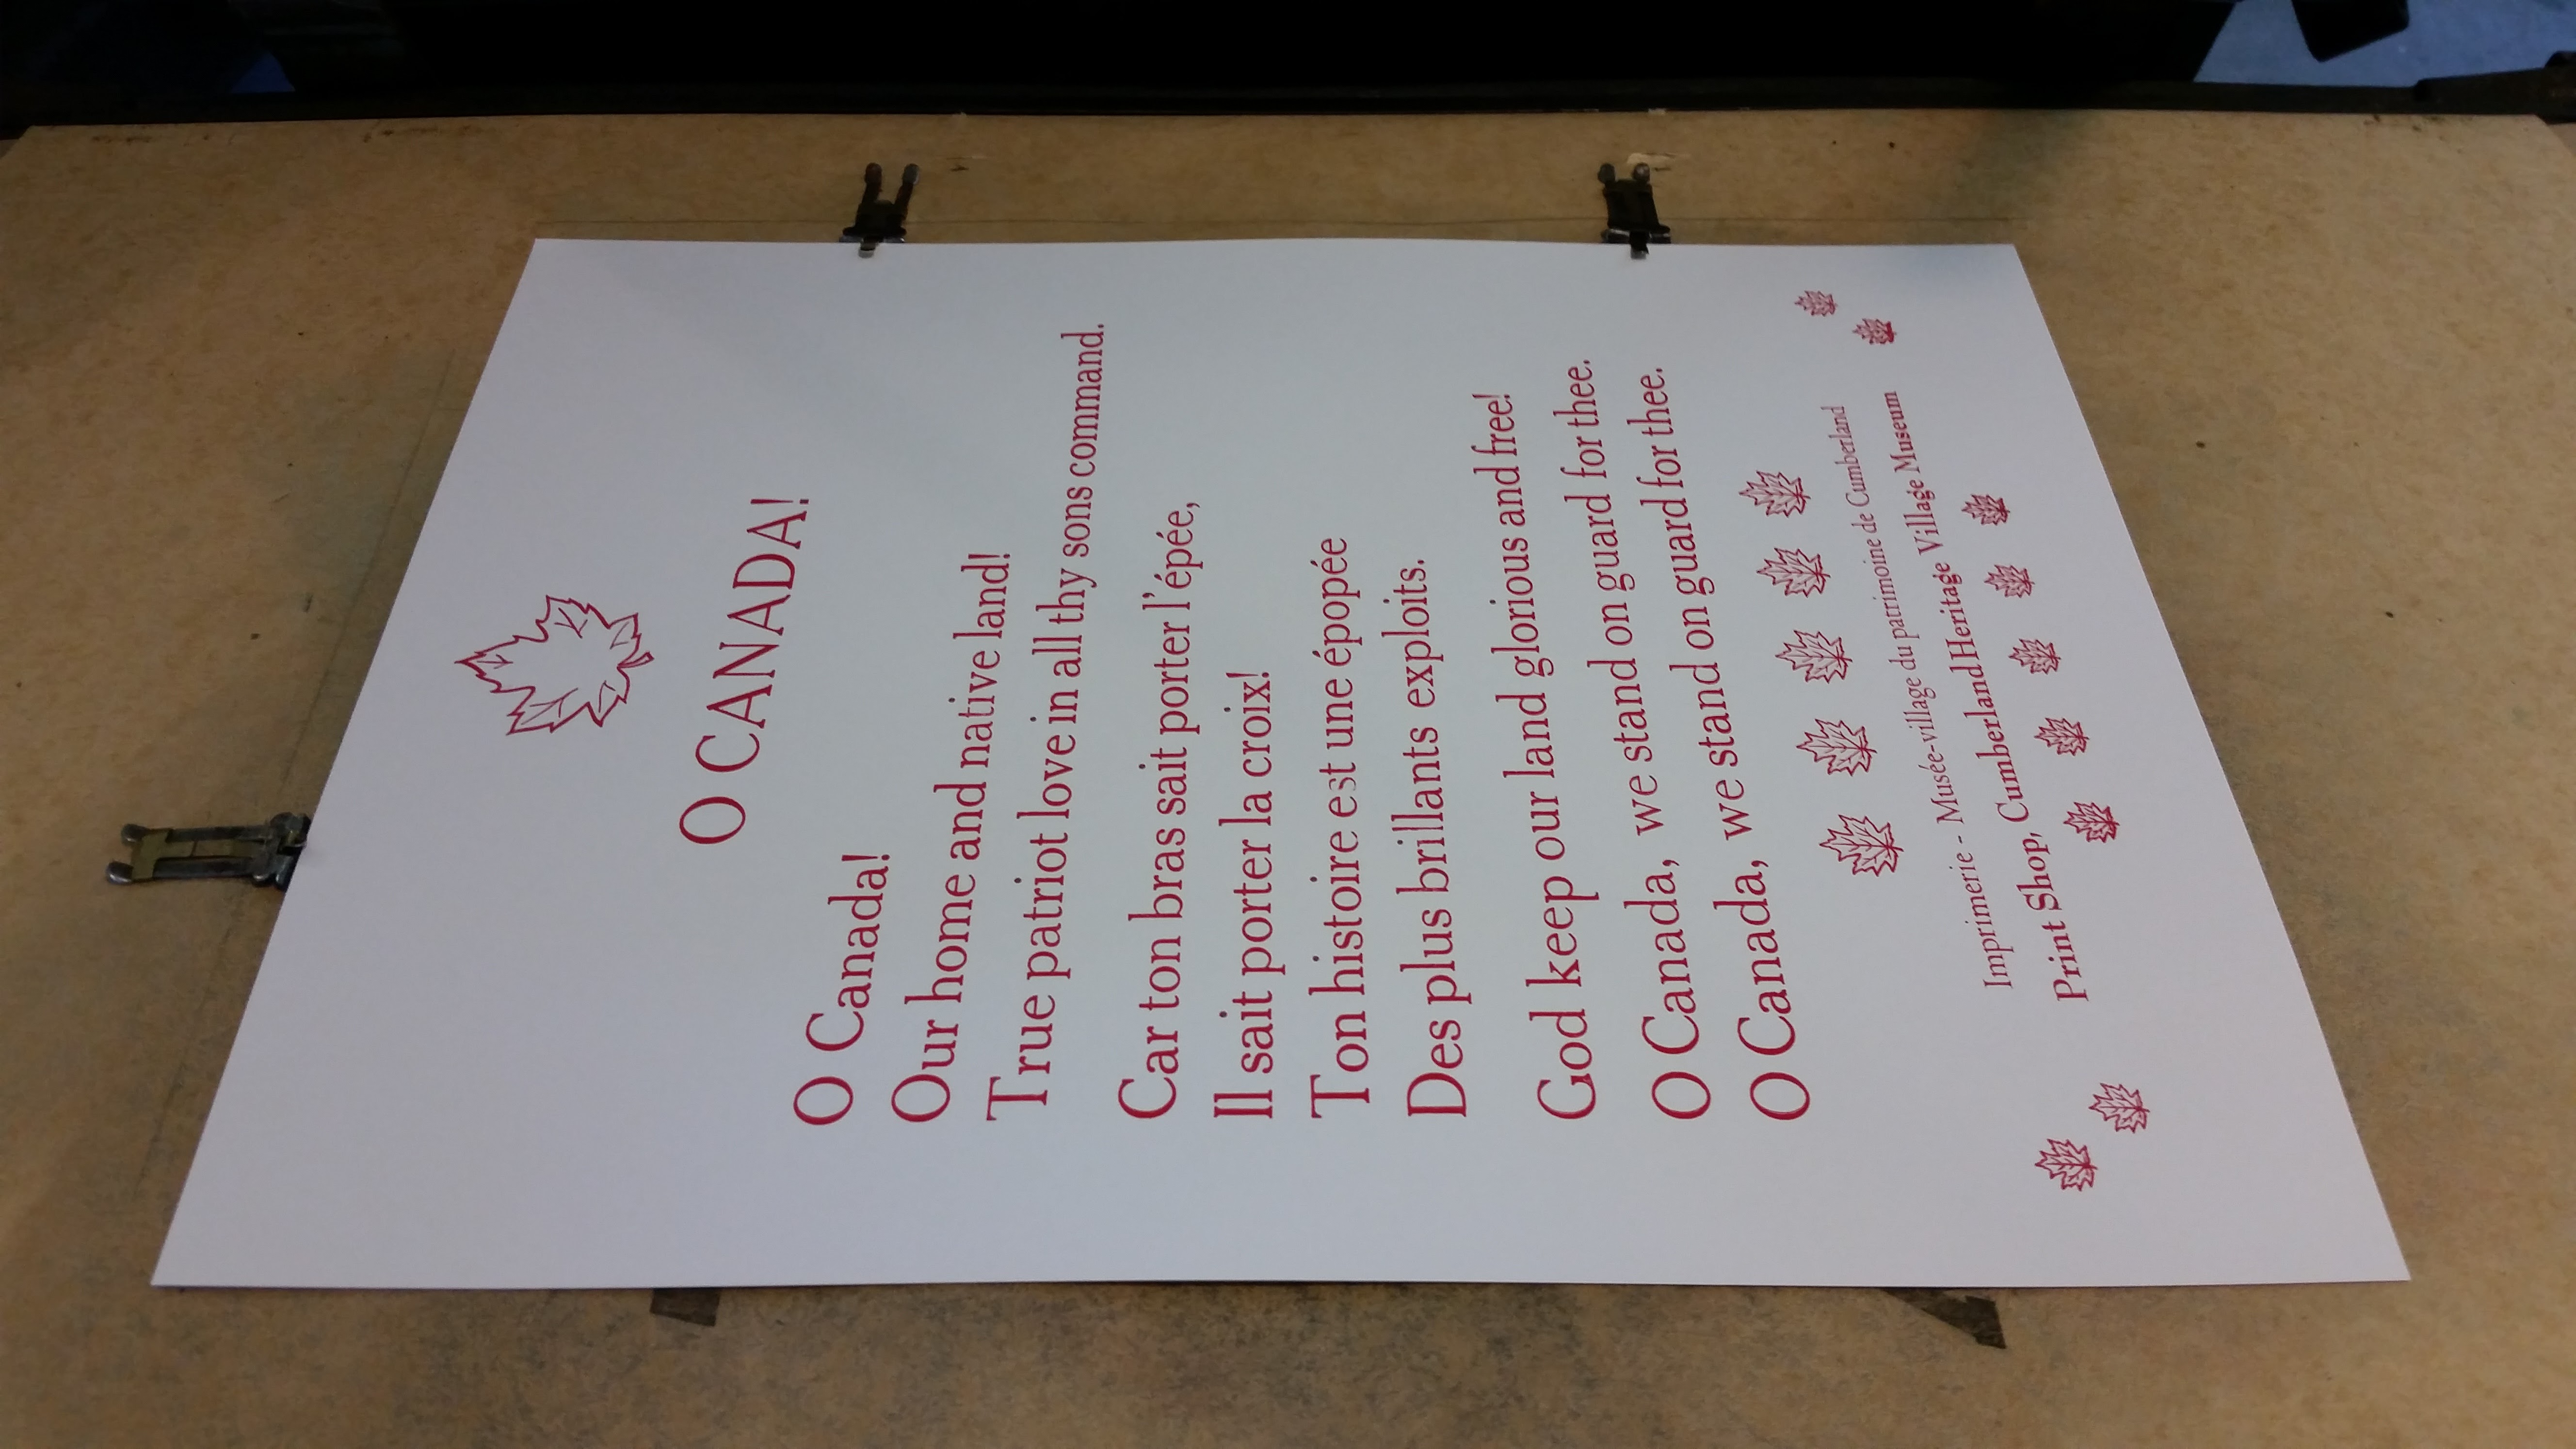 O CANADA!
O Canada!
Our home and native land!
True patriot love in all thy sons command.
Car ton bras sait porter l'épée,
Il sait porter la croix!
Ton histoire est une épopée
Des plus brillants exploits.
God keep our land glorious and free!
O Canada, we stand on guard for thee.
O Canada, we stand on guard for thee.
Imprimerie - Musée-village du patrimoine de Cumberland
Print Shop, Cumberland Heritage Village Museum